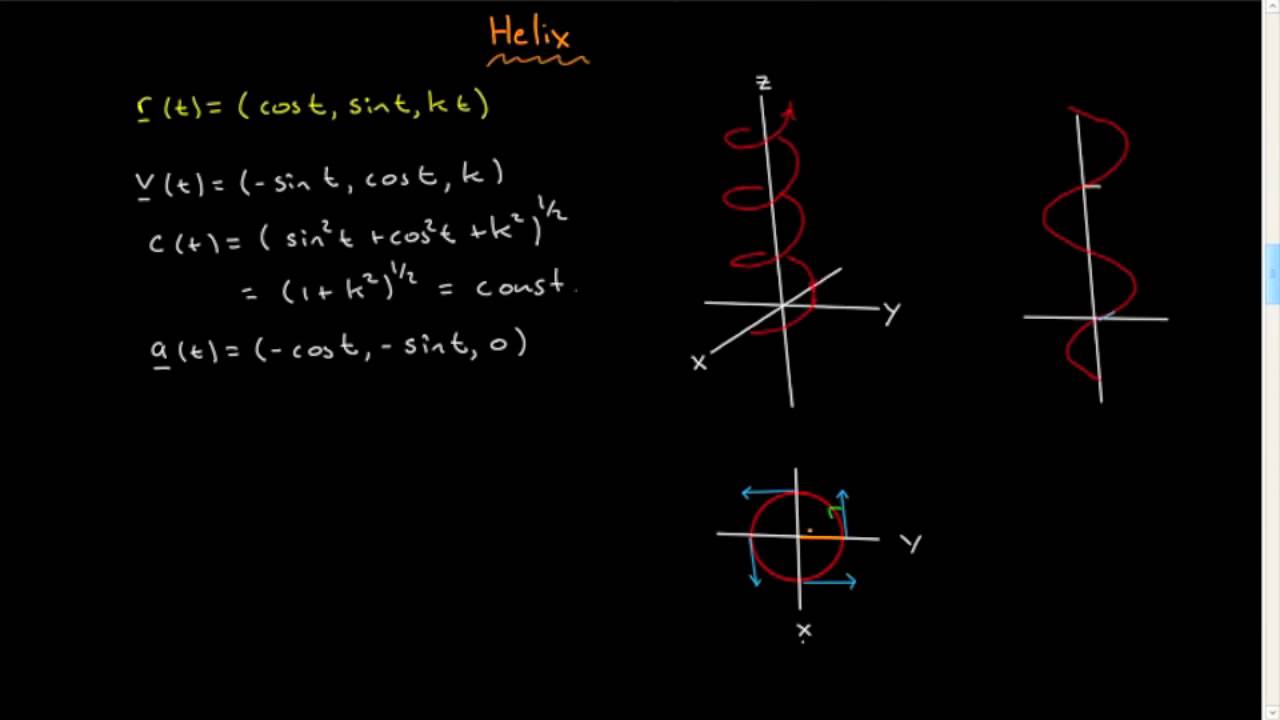 Helix
r(t) = (cos t, sin t, kt)
v(t) = (-sin t, cos t, k)
c(t) = (sin²t + cos²t + k²)^1/2
= (1 + k²)^1/2 = const.
a(t) = (-cos t, - sin t, 0)
z
Y
X
Y
X